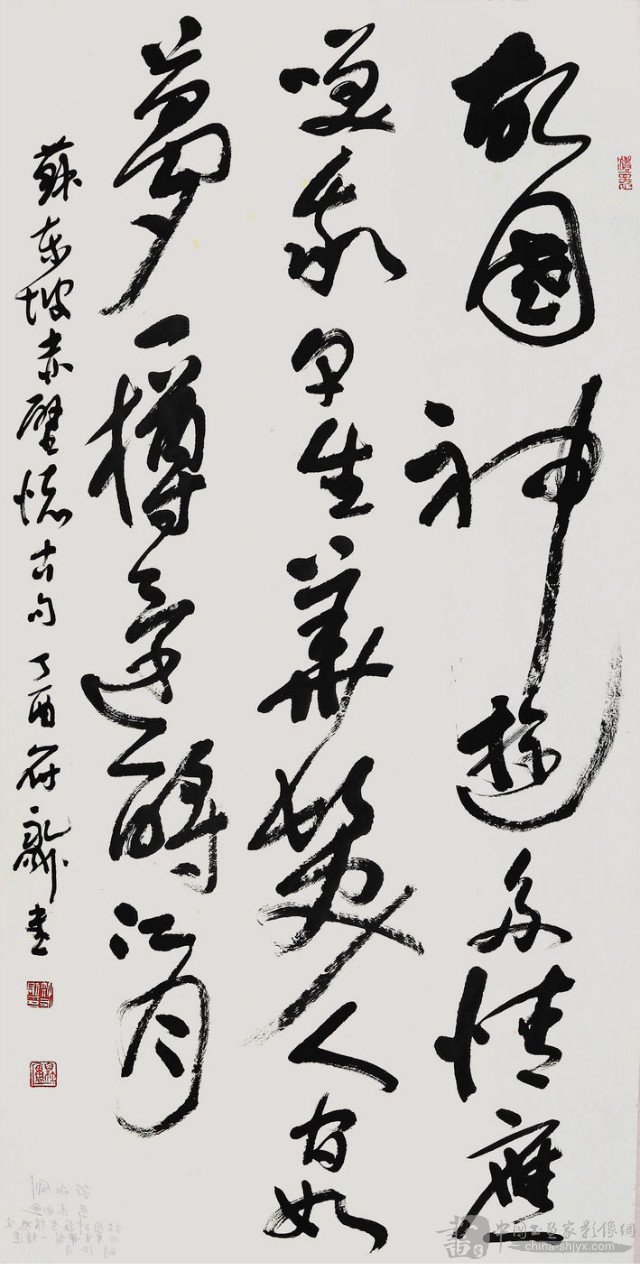 故國神遊多情應
笑我早生華髮人間如
夢一樽還酹江月
蘇東坡赤壁懷古句丁酉符永剛書
家影像網
china-shjyx.com